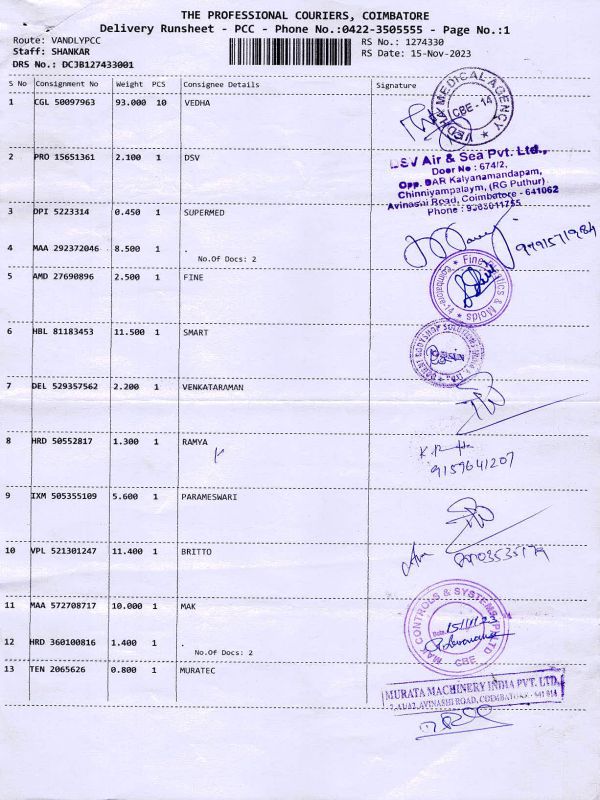 THE PROFESSIONAL COURIERS, COIMBATORE
Delivery Runsheet - PCC - Phone No.:0422-3505555 - Page No.:1
Route: VANDLYPCC
Staff: SHANKAR
DRS No.: DCJB127433001
RS No.: 1274330
RS Date: 15-Nov-2023
S No Consignment No Weight PCS Consignee Details Signature
1 CGL 50097963 93.000 10 VEDHA
VEDHA MEDICAL AGENCY
CBE - 14
2 PRO 15651361 2.100 1 DSV
DSV Air & Sea Pvt. Ltd.,
Door No : 674/2,
Opp. DAR Kalyanamandapam,
Chinniyampalayam, (RG Puthur)
Avinashi Road, Coimbatore - 641062
Phone :
3 DPI 5223314 0.450 1 SUPERMED
4 MAA 292372046 8.500 1 .
No.Of Docs: 2
5 AMD 27690896 2.500 1 FINE
& Molds
6 HBL 81183453 11.500 1 SMART
7 DEL 529357562 2.200 1 VENKATARAMAN
8 HRD 50552817 1.300 1 RAMYA
9159641207
9 IXM 505355109 5.600 1 PARAMESWARI
10 VPL 521301247 11.400 1 BRITTO
11 MAA 572708717 10.000 1 MAK
MAK CONTROLS & SYSTEMS PVT LTD
Date: 15/11/23
CBE
12 HRD 360100816 1.400 1 .
No.Of Docs: 2
13 TEN 2065626 0.800 1 MURATEC
MURATA MACHINERY INDIA PVT. LTD.
AVINASHI ROAD, COIMBATORE - 641 014